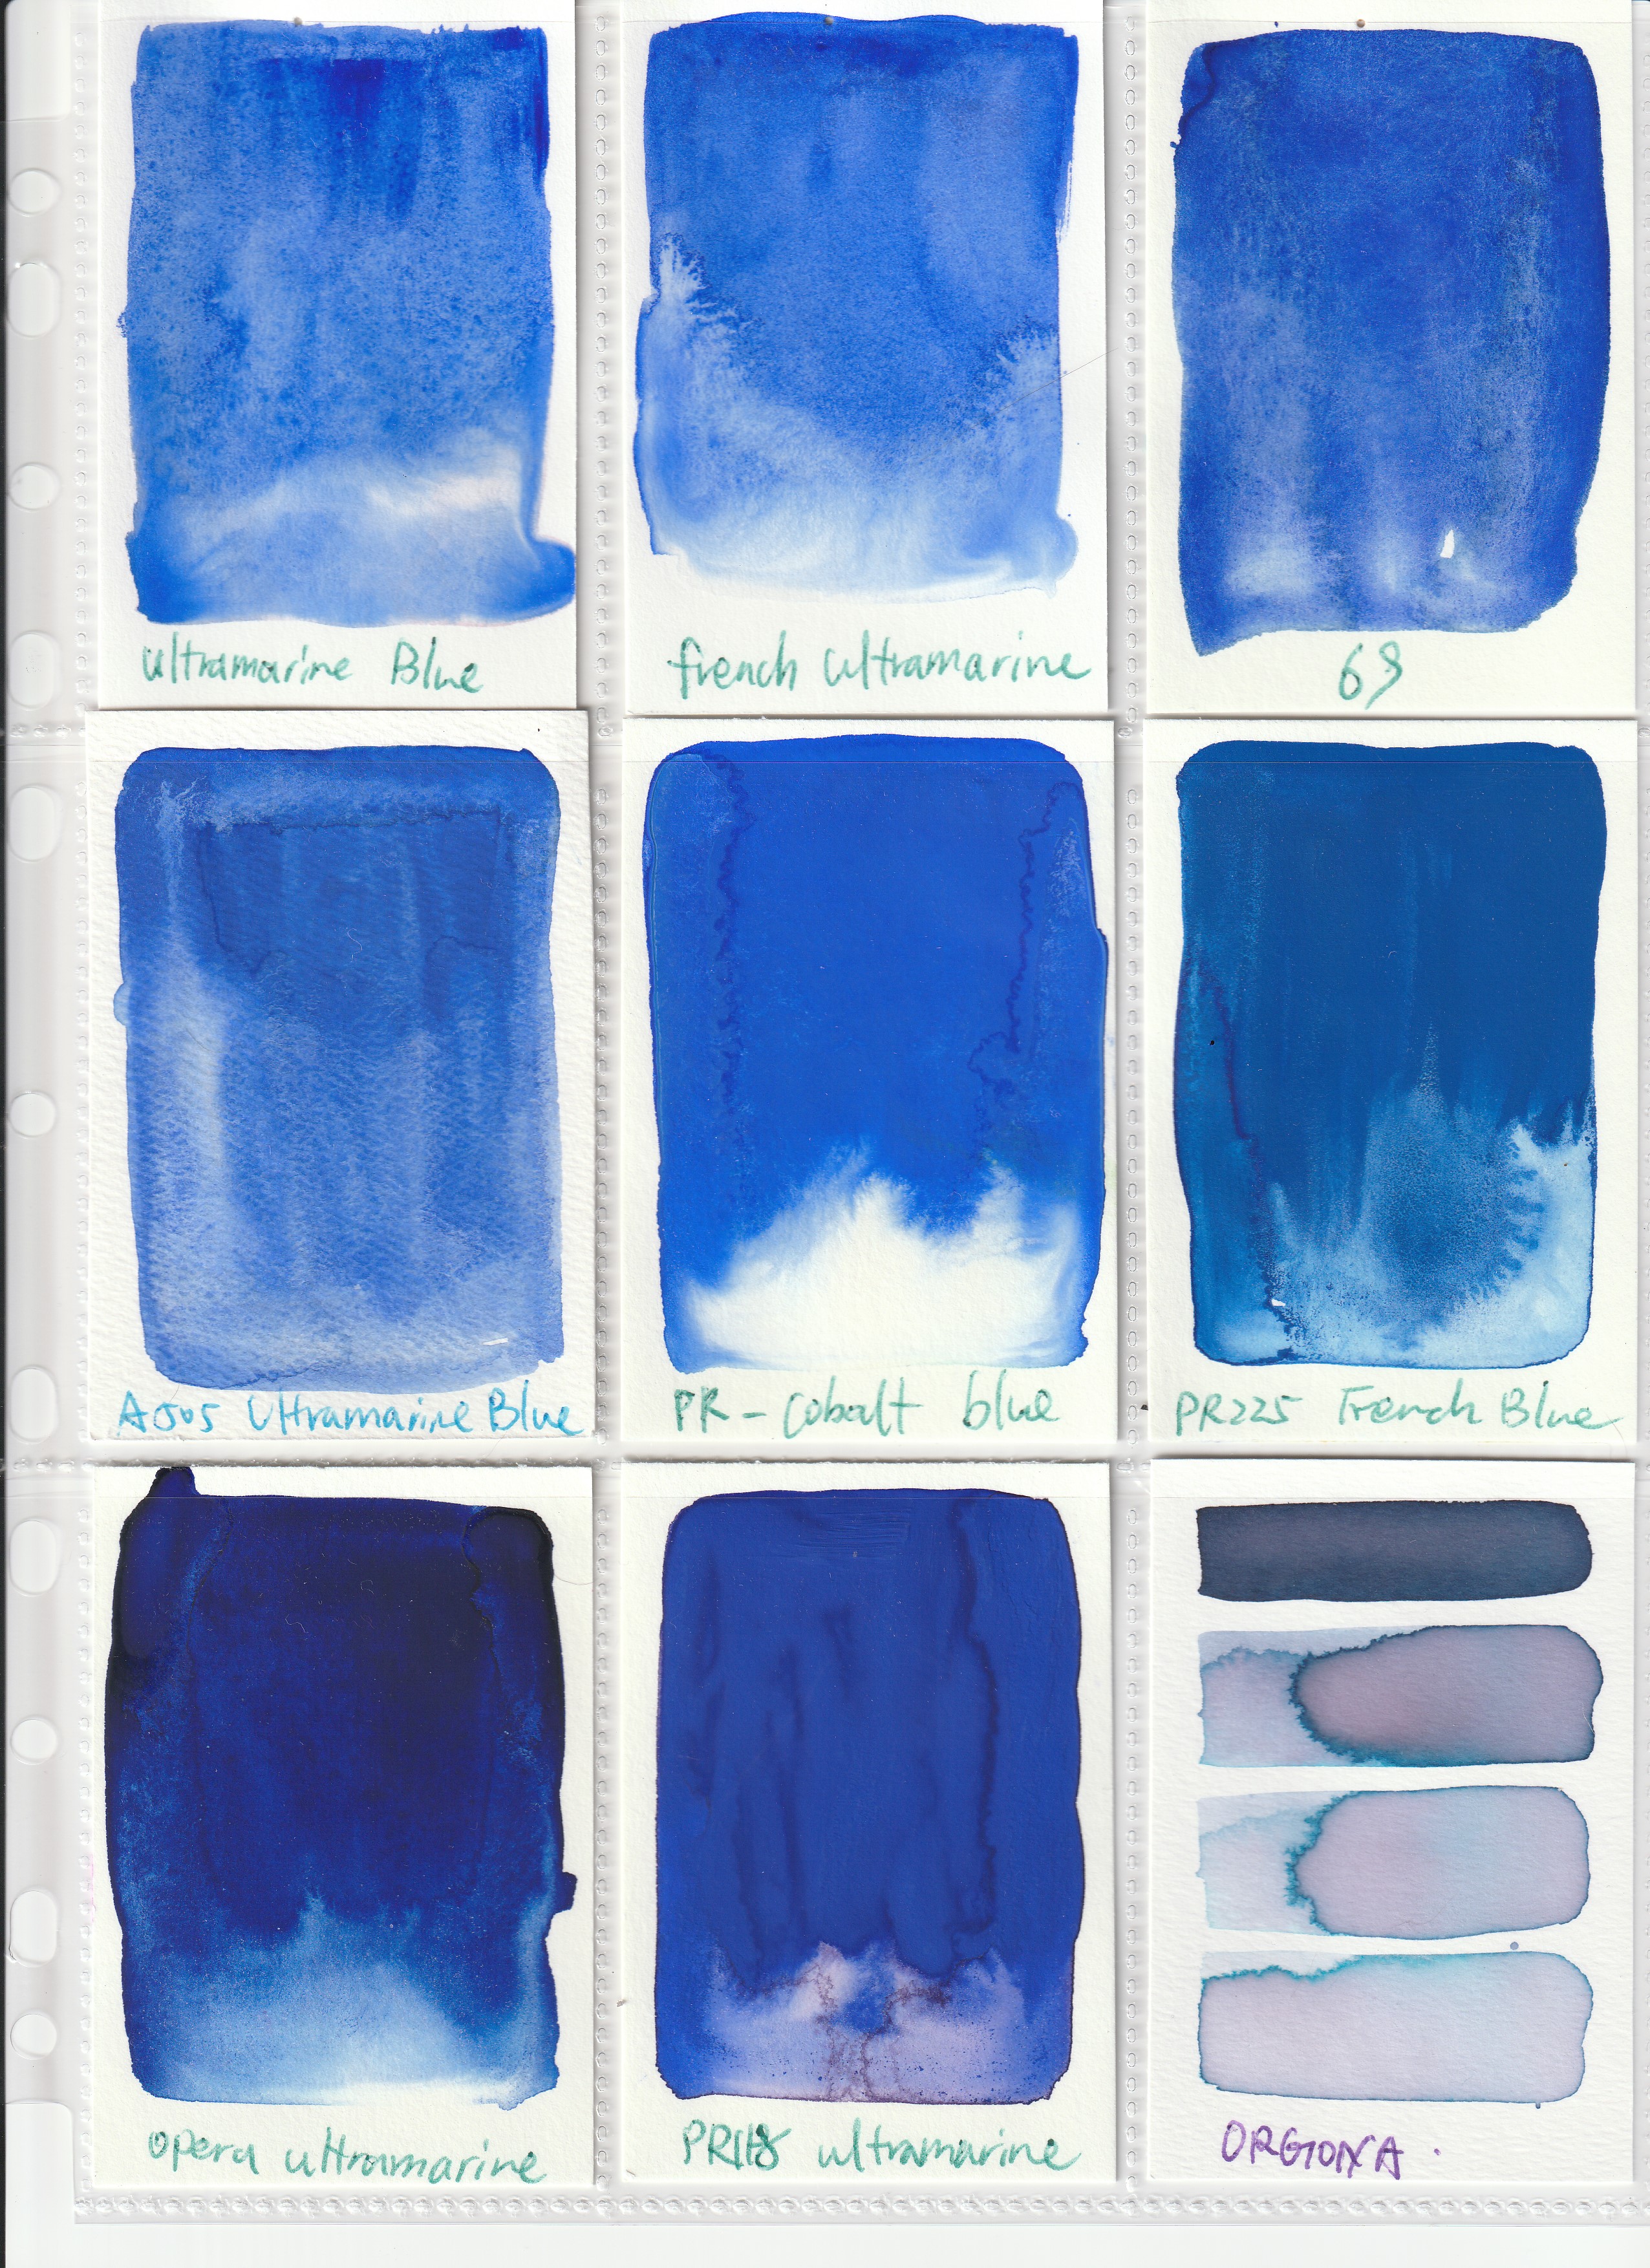 ultramarine Blue
french ultramarine
69
A505 Ultramarine Blue
PR - Cobalt blue
PR225 French Blue
opera ultramarine
PR118 ultramarine